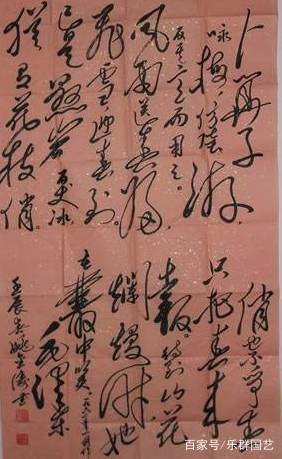 卜算子
咏梅仿陆游
反其意而用之。
风雨送春归，
飞雪迎春到。
已是悬岩百丈冰
犹有花枝俏。
俏也不争春
只把春来
报。待到山花
烂熳时她
在丛中笑
毛泽东
壬辰春姚金涛书
百家号/乐群国艺